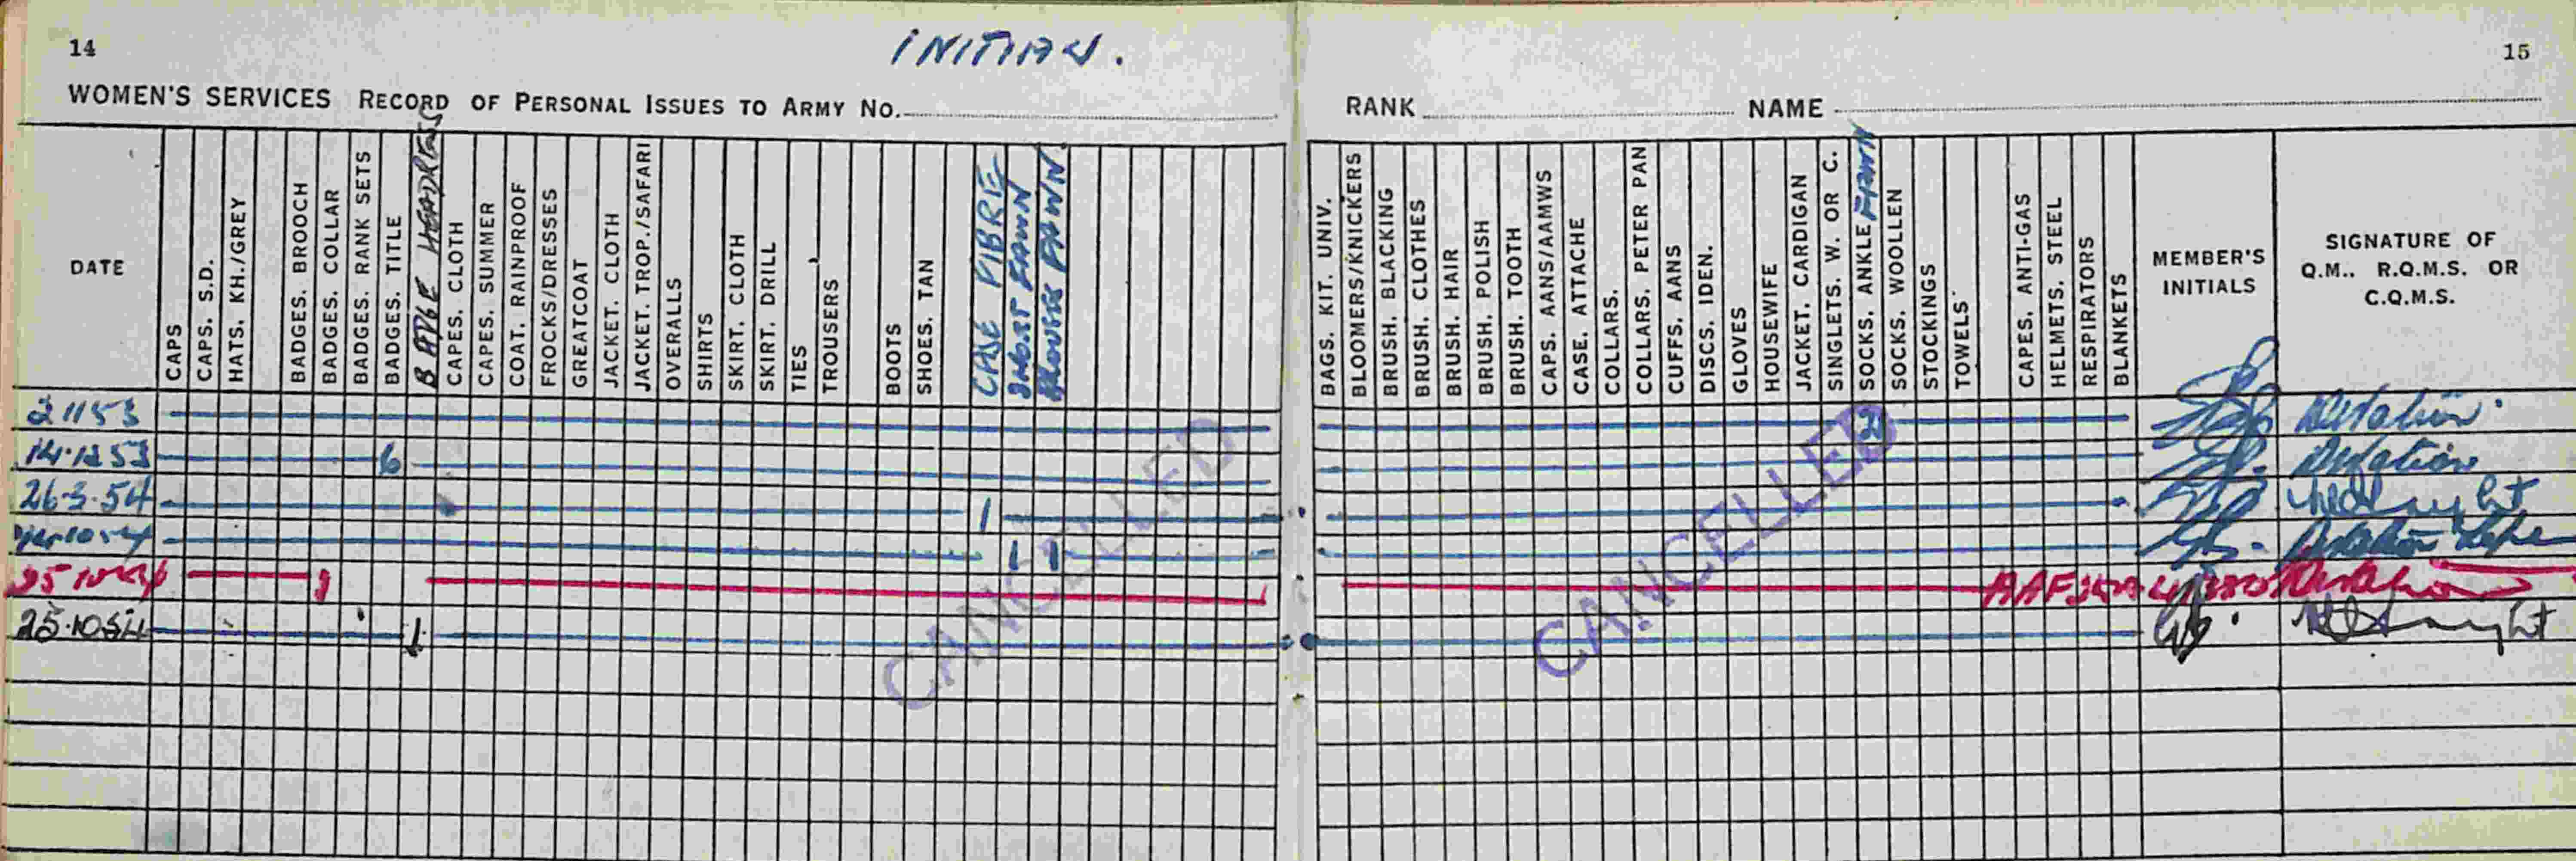 14
INITIAL.
15
WOMEN'S SERVICES RECORD OF PERSONAL ISSUES TO ARMY No.
RANK NAME
DATE
CAPS
CAPS. S.D.
HATS. KH./GREY
BADGES. BROOCH
BADGES. COLLAR
BADGES. RANK SETS
BADGES. TITLE
HEADRESS
CAPES. CLOTH
CAPES. SUMMER
COAT. RAINPROOF
FROCKS/DRESSES
GREATCOAT
JACKET. CLOTH
JACKET. TROP./SAFARI
OVERALLS
SHIRTS
SKIRT. CLOTH
SKIRT. DRILL
TIES
TROUSERS
BOOTS
SHOES. TAN
CASE FIBRE
FAWN
BLOUSES FAWN
BAGS. KIT. UNIV.
BLOOMERS/KNICKERS
BRUSH. BLACKING
BRUSH. CLOTHES
BRUSH. HAIR
BRUSH. POLISH
BRUSH. TOOTH
CAPS. AANS/AAMWS
CASE. ATTACHE
COLLARS.
COLLARS. PETER PAN
CUFFS. AANS
DISCS. IDEN.
GLOVES
HOUSEWIFE
JACKET. CARDIGAN
SINGLETS. W. OR C.
SOCKS. ANKLE FAWN
SOCKS. WOOLLEN
STOCKINGS
TOWELS
CAPES. ANTI-GAS
HELMETS. STEEL
RESPIRATORS
BLANKETS
MEMBER'S
INITIALS
SIGNATURE OF
Q.M.. R.Q.M.S. OR
C.Q.M.S.
2 11 53 2
14.12 53 6
26.3.54 1 Lt
1 1
1
25.10.54 1 Lt
CANCELLED
CANCELLED